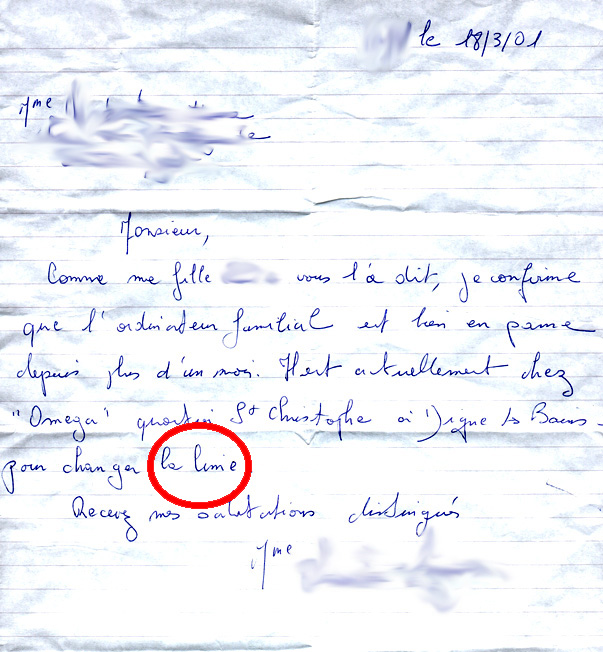 le 18/3/01
Mme
Monsieur,
Comme ma fille vous l'a dit, je confirme
que l'ordinateur familial est bien en panne
depuis plus d'un mois. Il est actuellement chez
"Omega" quartier St Christophe à Digne ls Bains
pour changer la
Recevez mes salutations distingués
Mme